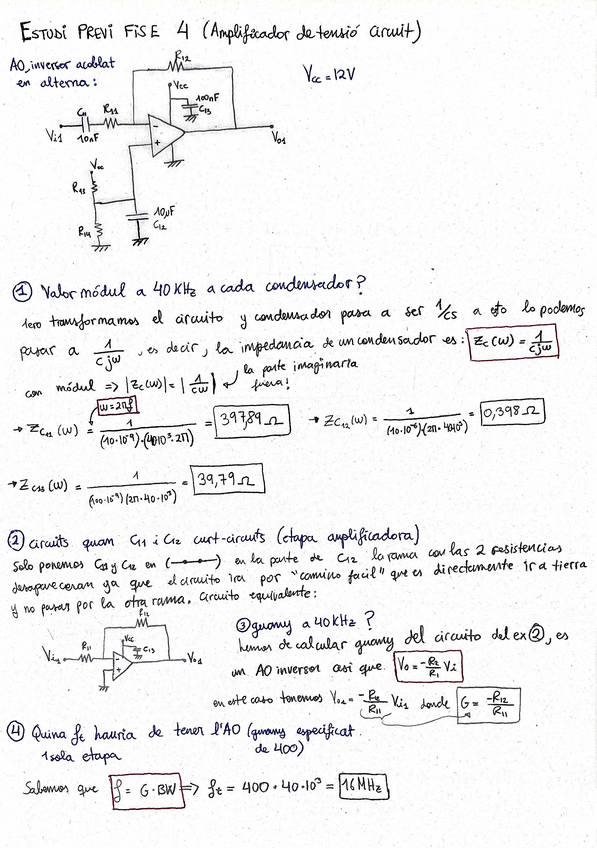 ESTUDI PREVI FISE 4 (Amplificador de tensió circuit)
AO inversor acoblat
en alterna:
R12
Vcc = 12V
Vcc
100nF
C13
C11
R11
Vi1
10nF
Vo1
Vcc
R13
R14
10µF
C12
① Valor mòdul a 40 KHz a cada condensador?
1ero transformamos el circuito y condensador pasa a ser 1/cs a esto lo podemos
pasar a 1/cjω, es decir, la impedancia de un condensador es: Zc(ω) = 1/cjω
con mòdul => |Zc(ω)| = |1/cω| la parte imaginaria
fuera!
ω=2πf
→ ZC11 (ω) = 1/(10·10⁻⁹)·(40·10³·2π) = 397,89 Ω → ZC12 (ω) = 1/(10·10⁻⁶)(2π·40·10³) = 0,398 Ω
→ ZC13 (ω) = 1/(100·10⁻⁹)(2π·40·10³) = 39,79 Ω
② circuits quan C11 i C12 curt-circuits (etapa amplificadora)
Solo ponemos C11 y C12 en ( ) en la parte de C12 la rama con las 2 resistencias
desapareceran ya que el circuito ira por "camino facil" que es directamente ir a tierra
y no pasar por la otra rama. Circuito equivalente:
R12
R11
Vcc
C13
Vi1
Vo1
③ guany a 40KHz ?
hemos de calcular guany del circuito del ex ②, es
un AO inversor asi que Vo = -R2/R1 Vi
en este caso tenemos Vo1 = -R12/R11 Vi1 donde G = -R12/R11
④ Quina ft hauria de tener l'AO (guany especificat
1 sola etapa de 400)
Sabemos que f = G·BW => ft = 400·40·10³ = 16MHz